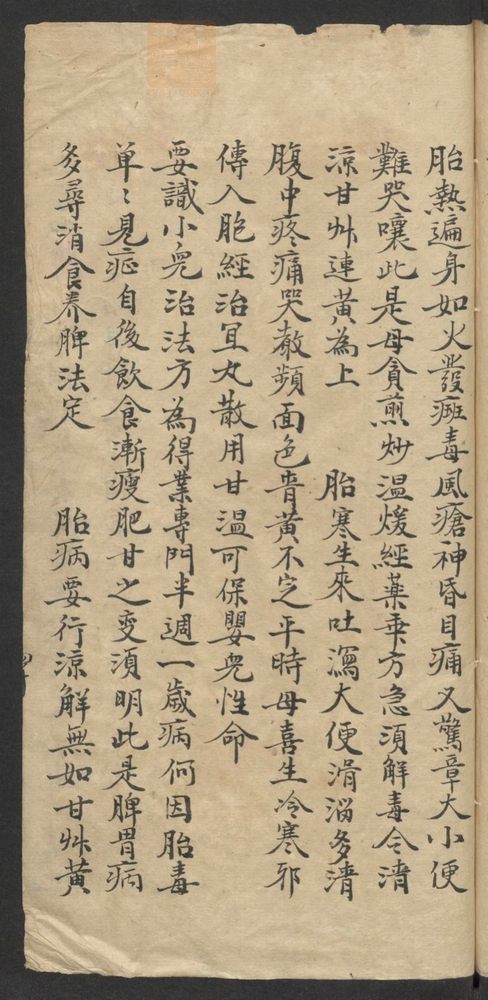 胎熱遍身如火發癍毒風瘡神昏目痛又驚章大小便
難哭嚷此是母貪煎炒温煖經藥乗方急湏解毒令清
涼甘艸連黃為上　胎寒生來吐瀉大便滑溜多清
腹中疼痛哭教頻面色青黃不定平時母喜生冷寒邪
傳入胞經治宜丸散用甘温可保嬰皃性命
要識小皃治法方為得業專門半週一歲病何因胎毒
单〻見症自後飲食漸瘦肥甘之变湏明此是脾胃病
多尋消食养脾法定　胎病要行涼解無如甘艸黃